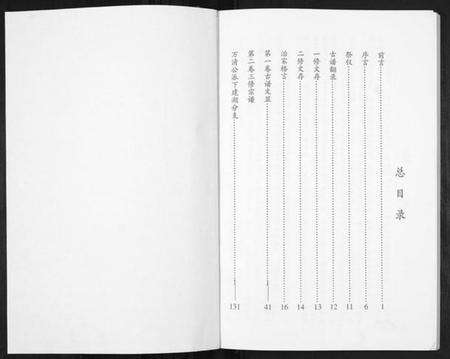 总目录
前言 1
序言 6
祭仪 11
古谱翻录 12
一修文存 13
二修文存 14
治家格言 16
第一卷古谱文豆 41
第二卷三修宗谱
万清公派下建湖分支 131